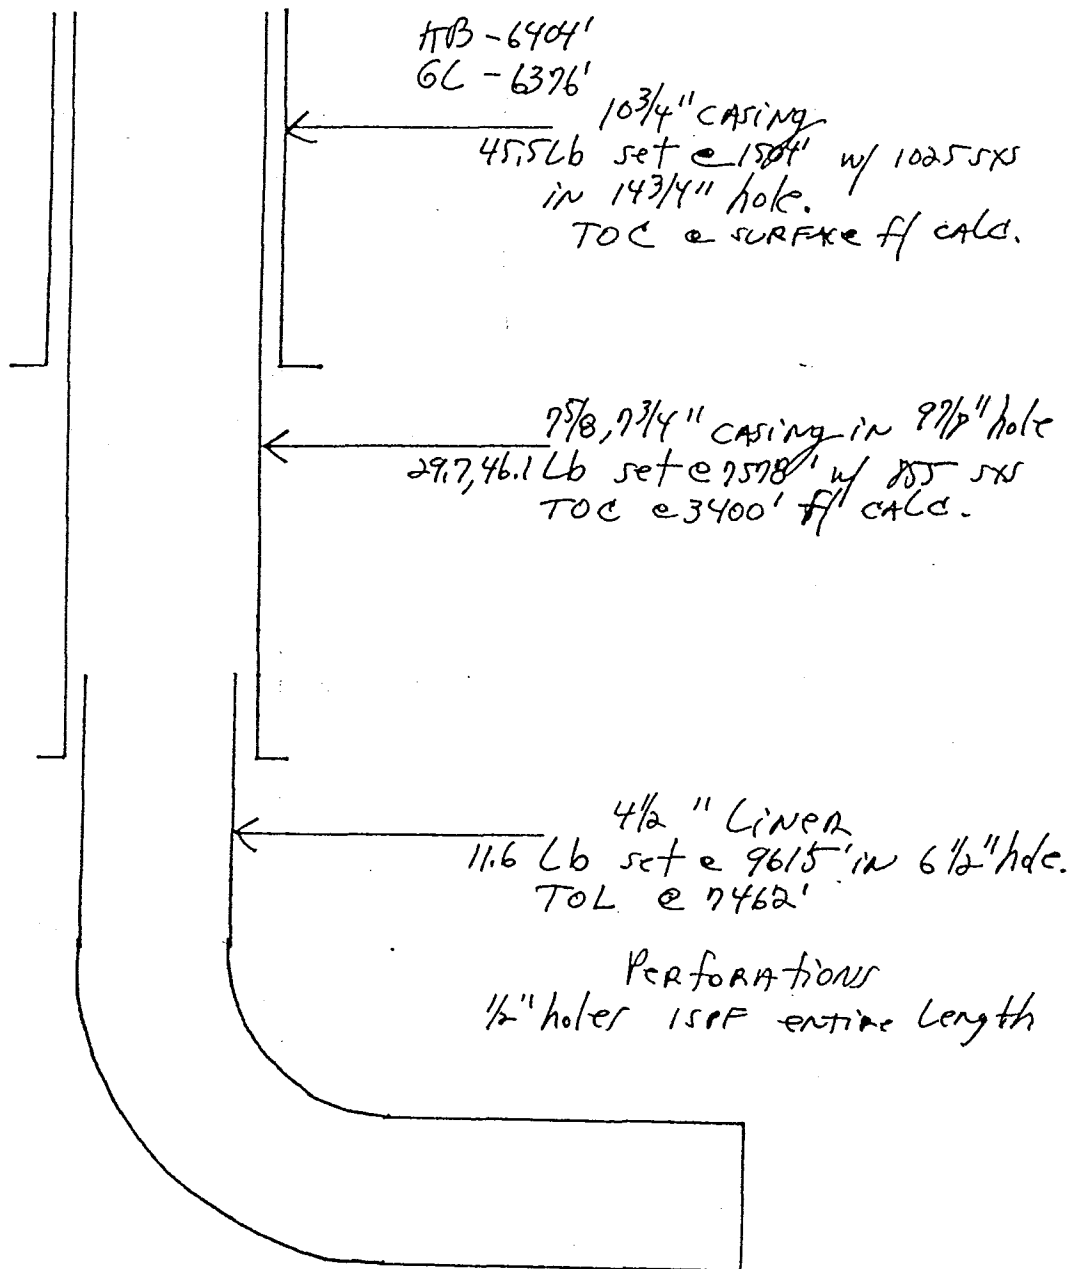 KB - 6404'
GL - 6376'
10 3/4" CASING
45.5 Lb set @ 1504' w/ 1025 SXS
IN 14 3/4" hole.
TOC @ SURFACE f/ CALC.
7 5/8, 7 3/4" CASING IN 9 7/8" hole
29.7, 46.1 Lb set @ 7578' w/ 855 SXS
TOC @ 3400' f/ CALC.
4 1/2" LINER
11.6 Lb set @ 9615' IN 6 1/2" hole.
TOL @ 7462'
PERFORATIONS
1/2" holes 1SPF entire Length